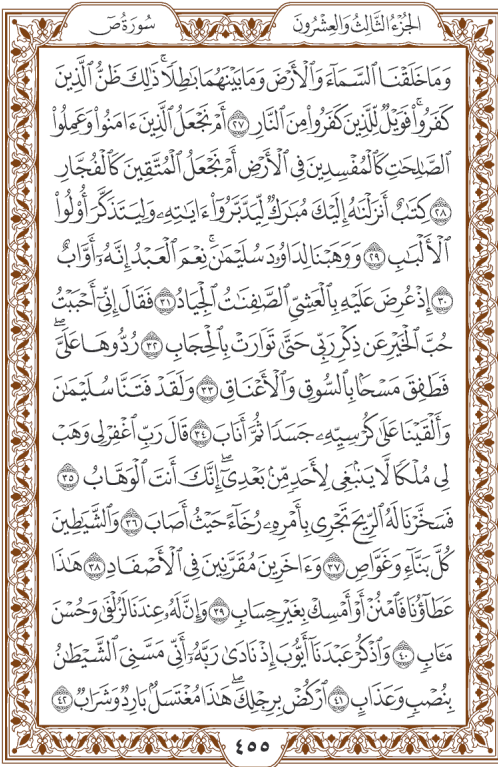 سُورَةُ صٓ
الجُزْءُ الثَّالِثُ وَالعِشْرُونَ
وَمَا خَلَقْنَا ٱلسَّمَآءَ وَٱلْأَرْضَ وَمَا بَيْنَهُمَا بَٰطِلًا ۚ ذَٰلِكَ ظَنُّ ٱلَّذِينَ
كَفَرُوا۟ ۚ فَوَيْلٌ لِّلَّذِينَ كَفَرُوا۟ مِنَ ٱلنَّارِ ٢٧ أَمْ نَجْعَلُ ٱلَّذِينَ ءَامَنُوا۟ وَعَمِلُوا۟
ٱلصَّٰلِحَٰتِ كَٱلْمُفْسِدِينَ فِى ٱلْأَرْضِ أَمْ نَجْعَلُ ٱلْمُتَّقِينَ كَٱلْفُجَّارِ
٢٨ كِتَٰبٌ أَنزَلْنَٰهُ إِلَيْكَ مُبَٰرَكٌ لِّيَدَّبَّرُوٓا۟ ءَايَٰتِهِۦ وَلِيَتَذَكَّرَ أُو۟لُوا۟
ٱلْأَلْبَٰبِ ٢٩ وَوَهَبْنَا لِدَاوُۥدَ سُلَيْمَٰنَ ۚ نِعْمَ ٱلْعَبْدُ ۖ إِنَّهُۥٓ أَوَّابٌ
٣٠ إِذْ عُرِضَ عَلَيْهِ بِٱلْعَشِىِّ ٱلصَّٰفِنَٰتُ ٱلْجِيَادُ ٣١ فَقَالَ إِنِّىٓ أَحْبَبْتُ
حُبَّ ٱلْخَيْرِ عَن ذِكْرِ رَبِّى حَتَّىٰ تَوَارَتْ بِٱلْحِجَابِ ٣٢ رُدُّوهَا عَلَىَّ ۖ
فَطَفِقَ مَسْحًۢا بِٱلسُّوقِ وَٱلْأَعْنَاقِ ٣٣ وَلَقَدْ فَتَنَّا سُلَيْمَٰنَ
وَأَلْقَيْنَا عَلَىٰ كُرْسِيِّهِۦ جَسَدًا ثُمَّ أَنَابَ ٣٤ قَالَ رَبِّ ٱغْفِرْ لِى وَهَبْ
لِى مُلْكًا لَّا يَنۢبَغِى لِأَحَدٍ مِّنۢ بَعْدِىٓ ۖ إِنَّكَ أَنتَ ٱلْوَهَّابُ ٣٥
فَسَخَّرْنَا لَهُ ٱلرِّيحَ تَجْرِى بِأَمْرِهِۦ رُخَآءً حَيْثُ أَصَابَ ٣٦ وَٱلشَّيَٰطِينَ
كُلَّ بَنَّآءٍ وَغَوَّاصٍ ٣٧ وَءَاخَرِينَ مُقَرَّنِينَ فِى ٱلْأَصْفَادِ ٣٨ هَٰذَا
عَطَآؤُنَا فَٱمْنُنْ أَوْ أَمْسِكْ بِغَيْرِ حِسَابٍ ٣٩ وَإِنَّ لَهُۥ عِندَنَا لَزُلْفَىٰ وَحُسْنَ
مَـَٔابٍ ٤٠ وَٱذْكُرْ عَبْدَنَآ أَيُّوبَ إِذْ نَادَىٰ رَبَّهُۥٓ أَنِّى مَسَّنِىَ ٱلشَّيْطَٰنُ
بِنُصْبٍ وَعَذَابٍ ٤١ ٱرْكُضْ بِرِجْلِكَ ۖ هَٰذَا مُغْتَسَلٌۢ بَارِدٌ وَشَرَابٌ ٤٢
٤٥٥